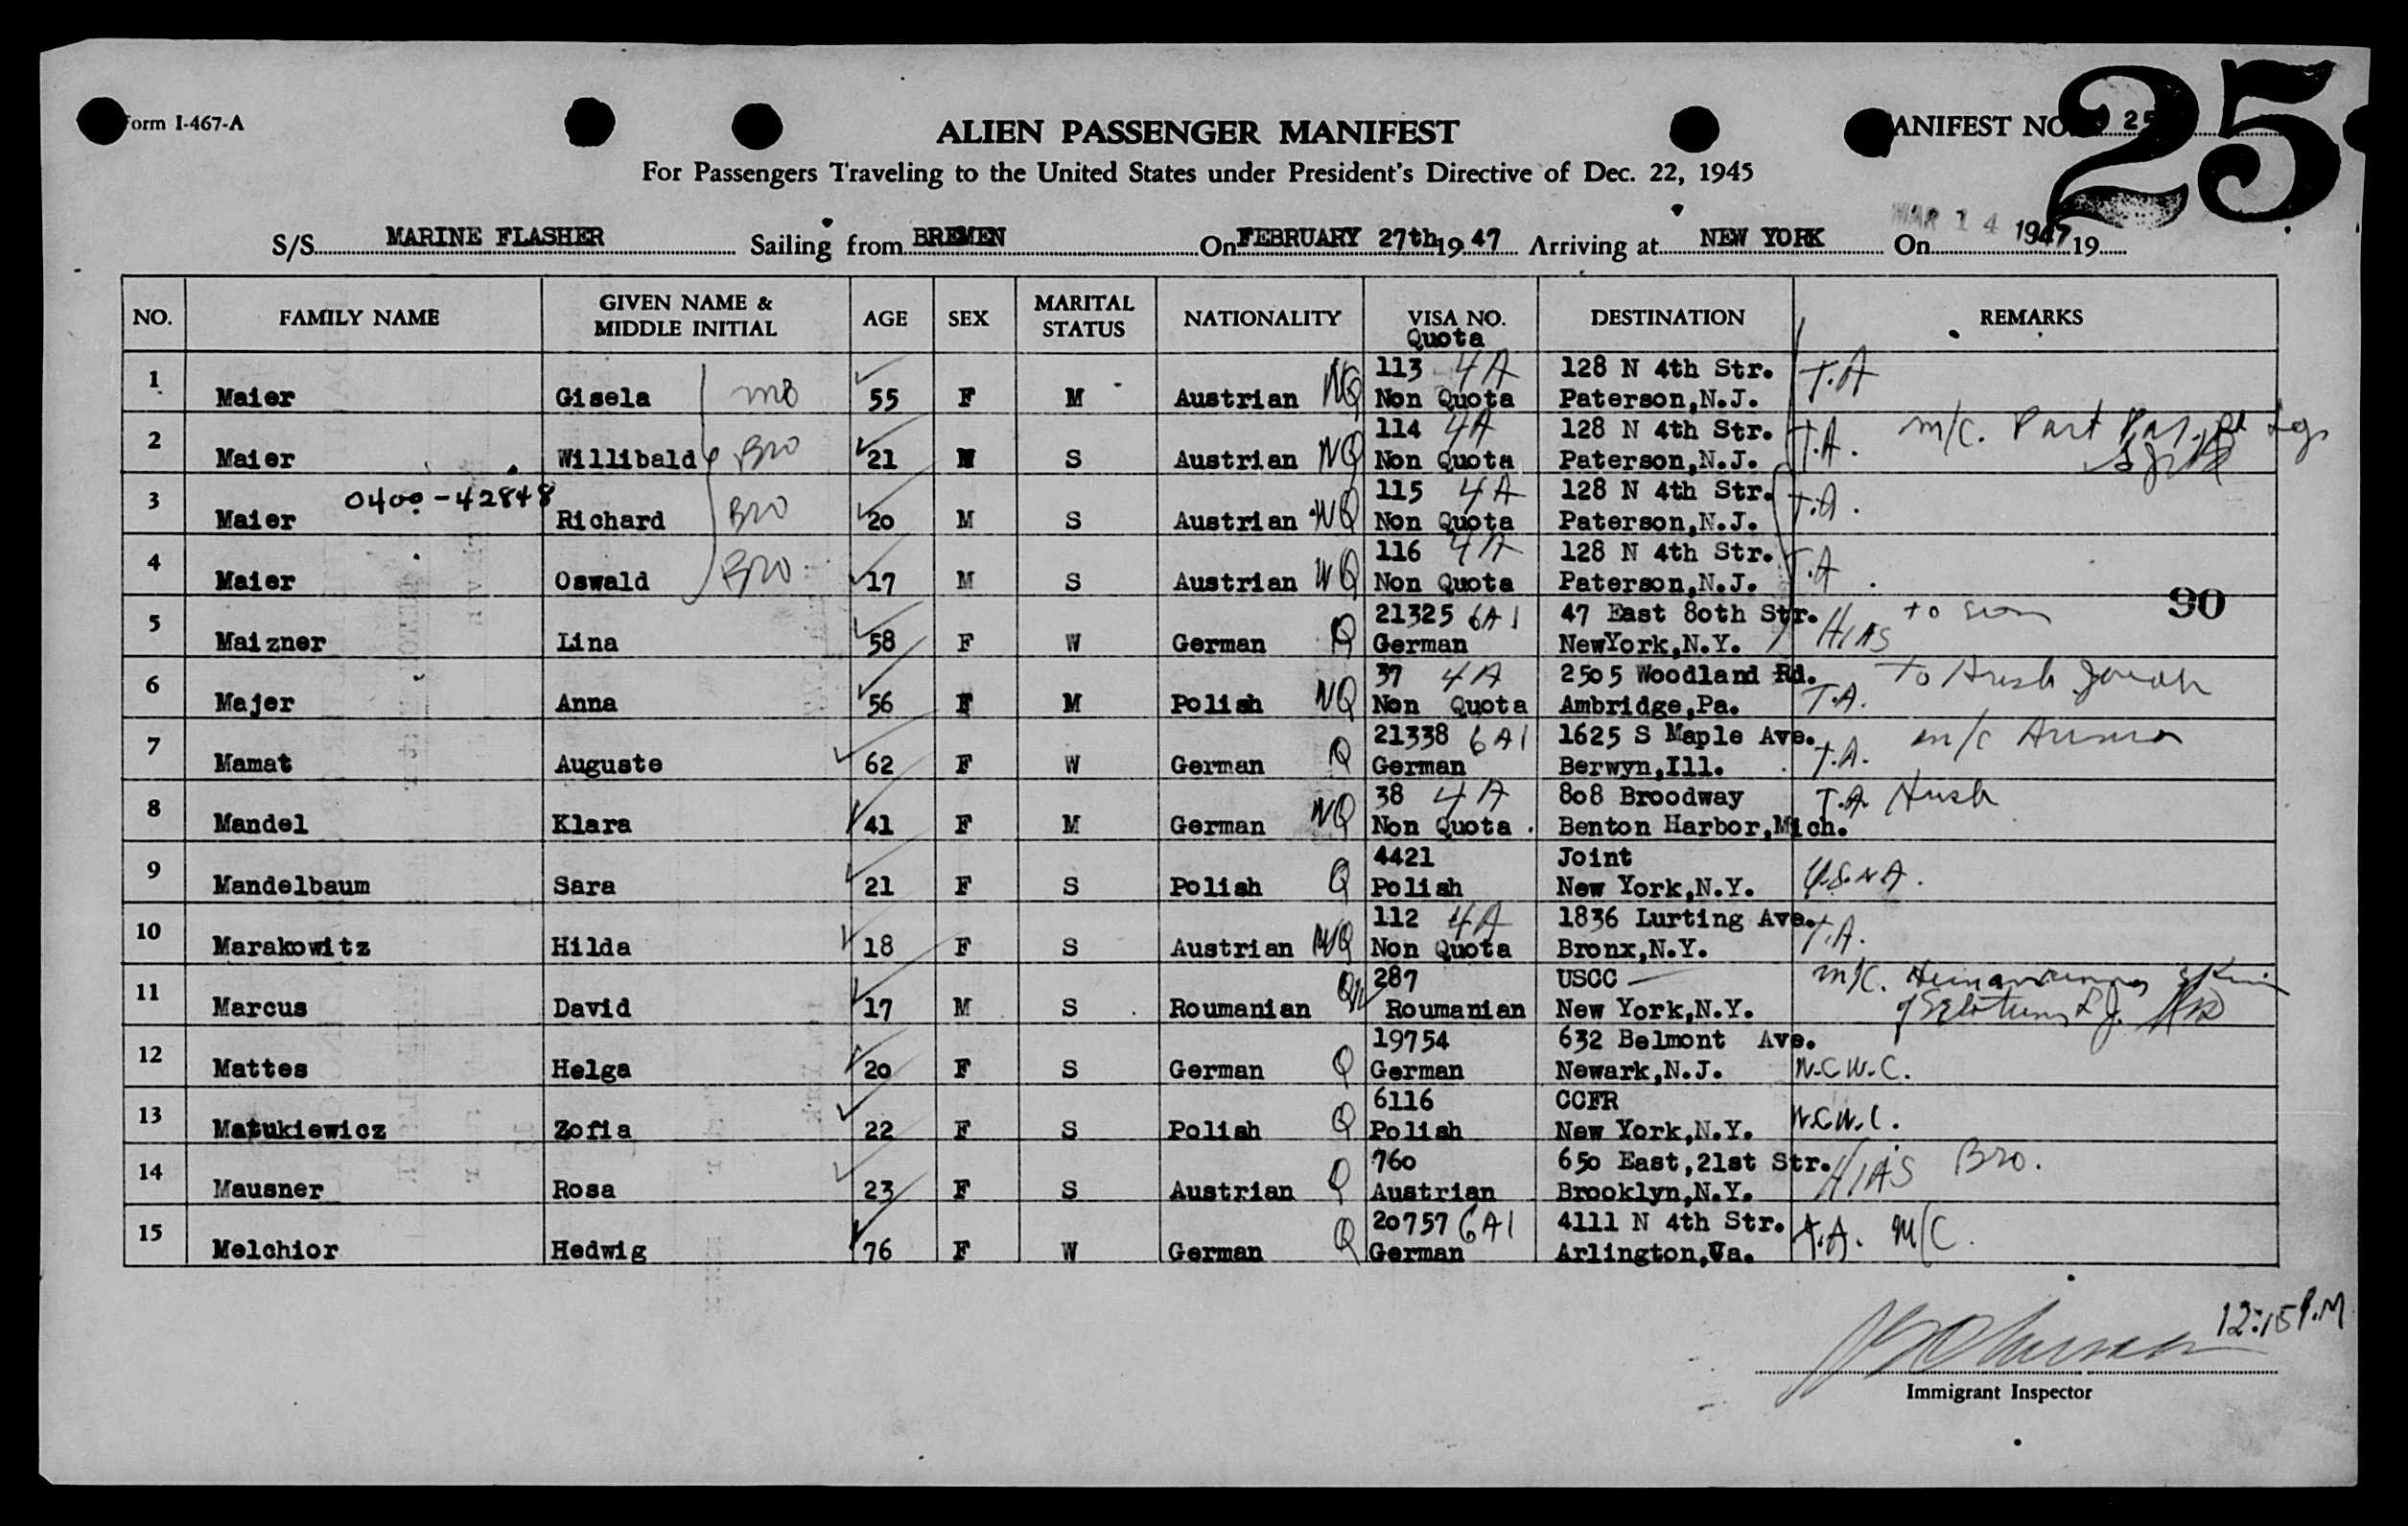 Form I-467-A
ALIEN PASSENGER MANIFEST
MANIFEST NO. 25
25
For Passengers Traveling to the United States under President's Directive of Dec. 22, 1945
S/S MARINE FLASHER Sailing from BREMEN On FEBRUARY 27th 19 47 Arriving at NEW YORK On MAR 14 1947 19
NO. FAMILY NAME GIVEN NAME & MIDDLE INITIAL AGE SEX MARITAL STATUS NATIONALITY VISA NO. Quota DESTINATION REMARKS
113 4A 128 N 4th Str. T.A
1 Maier Gisela mo 55 F M Austrian NQ Non Quota Paterson,N.J.
114 4A 128 N 4th Str. T.A. m/c. Part
2 Maier Willibald Bro 21 M S Austrian NQ Non Quota Paterson,N.J.
0400-42848 115 4A 128 N 4th Str. T.A.
3 Maier Richard Bro 20 M S Austrian NQ Non Quota Paterson,N.J.
116 4A 128 N 4th Str. T.A.
4 Maier Oswald Bro 17 M S Austrian NQ Non Quota Paterson,N.J.
90
21325 6A1 47 East 80th Str. HIAS to son
5 Maizner Lina 58 F W German Q German NewYork,N.Y.
37 4A 2505 Woodland Rd. T.A. To Husb
6 Majer Anna 56 F M Polish NQ Non Quota Ambridge,Pa.
21338 6A1 1625 S Maple Ave. T.A. m/c
7 Mamat Auguste 62 F W German Q German Berwyn,Ill.
38 4A 808 Broodway T.A. Husb
8 Mandel Klara 41 F M German NQ Non Quota Benton Harbor,Mich.
4421 Joint U.S.N.A.
9 Mandelbaum Sara 21 F S Polish Q Polish New York,N.Y.
112 4A 1836 Lurting Ave. T.A.
10 Marakowitz Hilda 18 F S Austrian NQ Non Quota Bronx,N.Y.
287 USCC m/c.
11 Marcus David 17 M S Roumanian Roumanian New York,N.Y.
19754 632 Belmont Ave.
12 Mattes Helga 20 F S German Q German Newark,N.J. N.C.W.C.
6116 CCFR
13 Matukiewicz Zofia 22 F S Polish Q Polish New York,N.Y. N.C.W.C.
760 650 East,21st Str. HIAS Bro.
14 Mausner Rosa 23 F S Austrian Q Austrian Brooklyn,N.Y.
20757 6A1 4111 N 4th Str. T.A. M/C.
15 Melchior Hedwig 76 F W German Q German Arlington,Va.
12:15 P.M
Immigrant Inspector